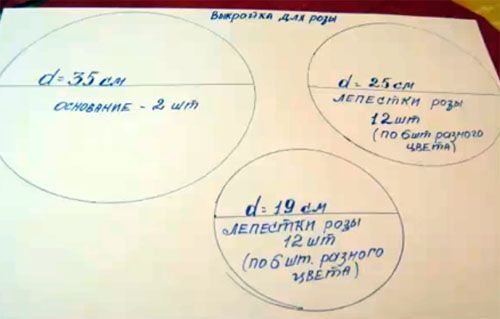 Выкройка для розы
d = 35 см
основание - 2 шт
d = 25 см
лепестки розы
12 шт
(по 6 шт. разного
цвета)
d = 19 см
лепестки розы
12 шт
(по 6 шт. разного
цвета)